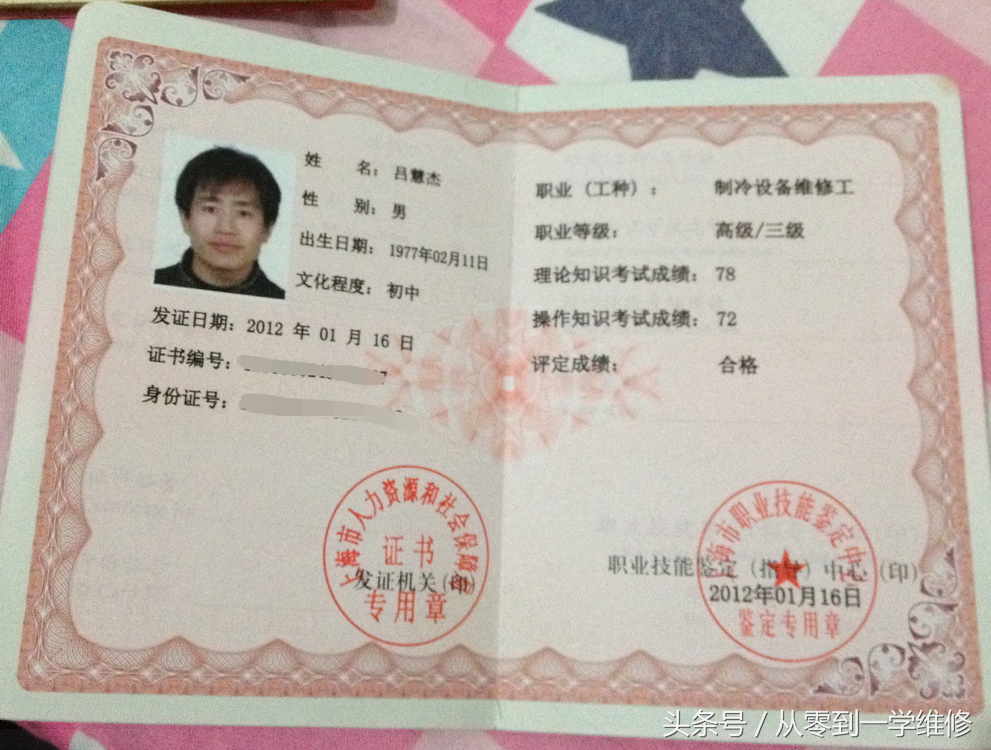 姓 名：吕慧杰
性 别：男
出生日期：1977年02月11日
文化程度：初中
发证日期：2012 年 01 月 16 日
证书编号：
身份证号：
上海市人力资源和社会保障局
证书
专用章
发证机关（印）
职业（工种）： 制冷设备维修工
职业等级： 高级/三级
理论知识考试成绩： 78
操作知识考试成绩： 72
评定成绩： 合格
上海市职业技能鉴定中心
职业技能鉴定（指导）中心（印）
2012年01月16日
鉴定专用章
头条号 / 从零到一学维修